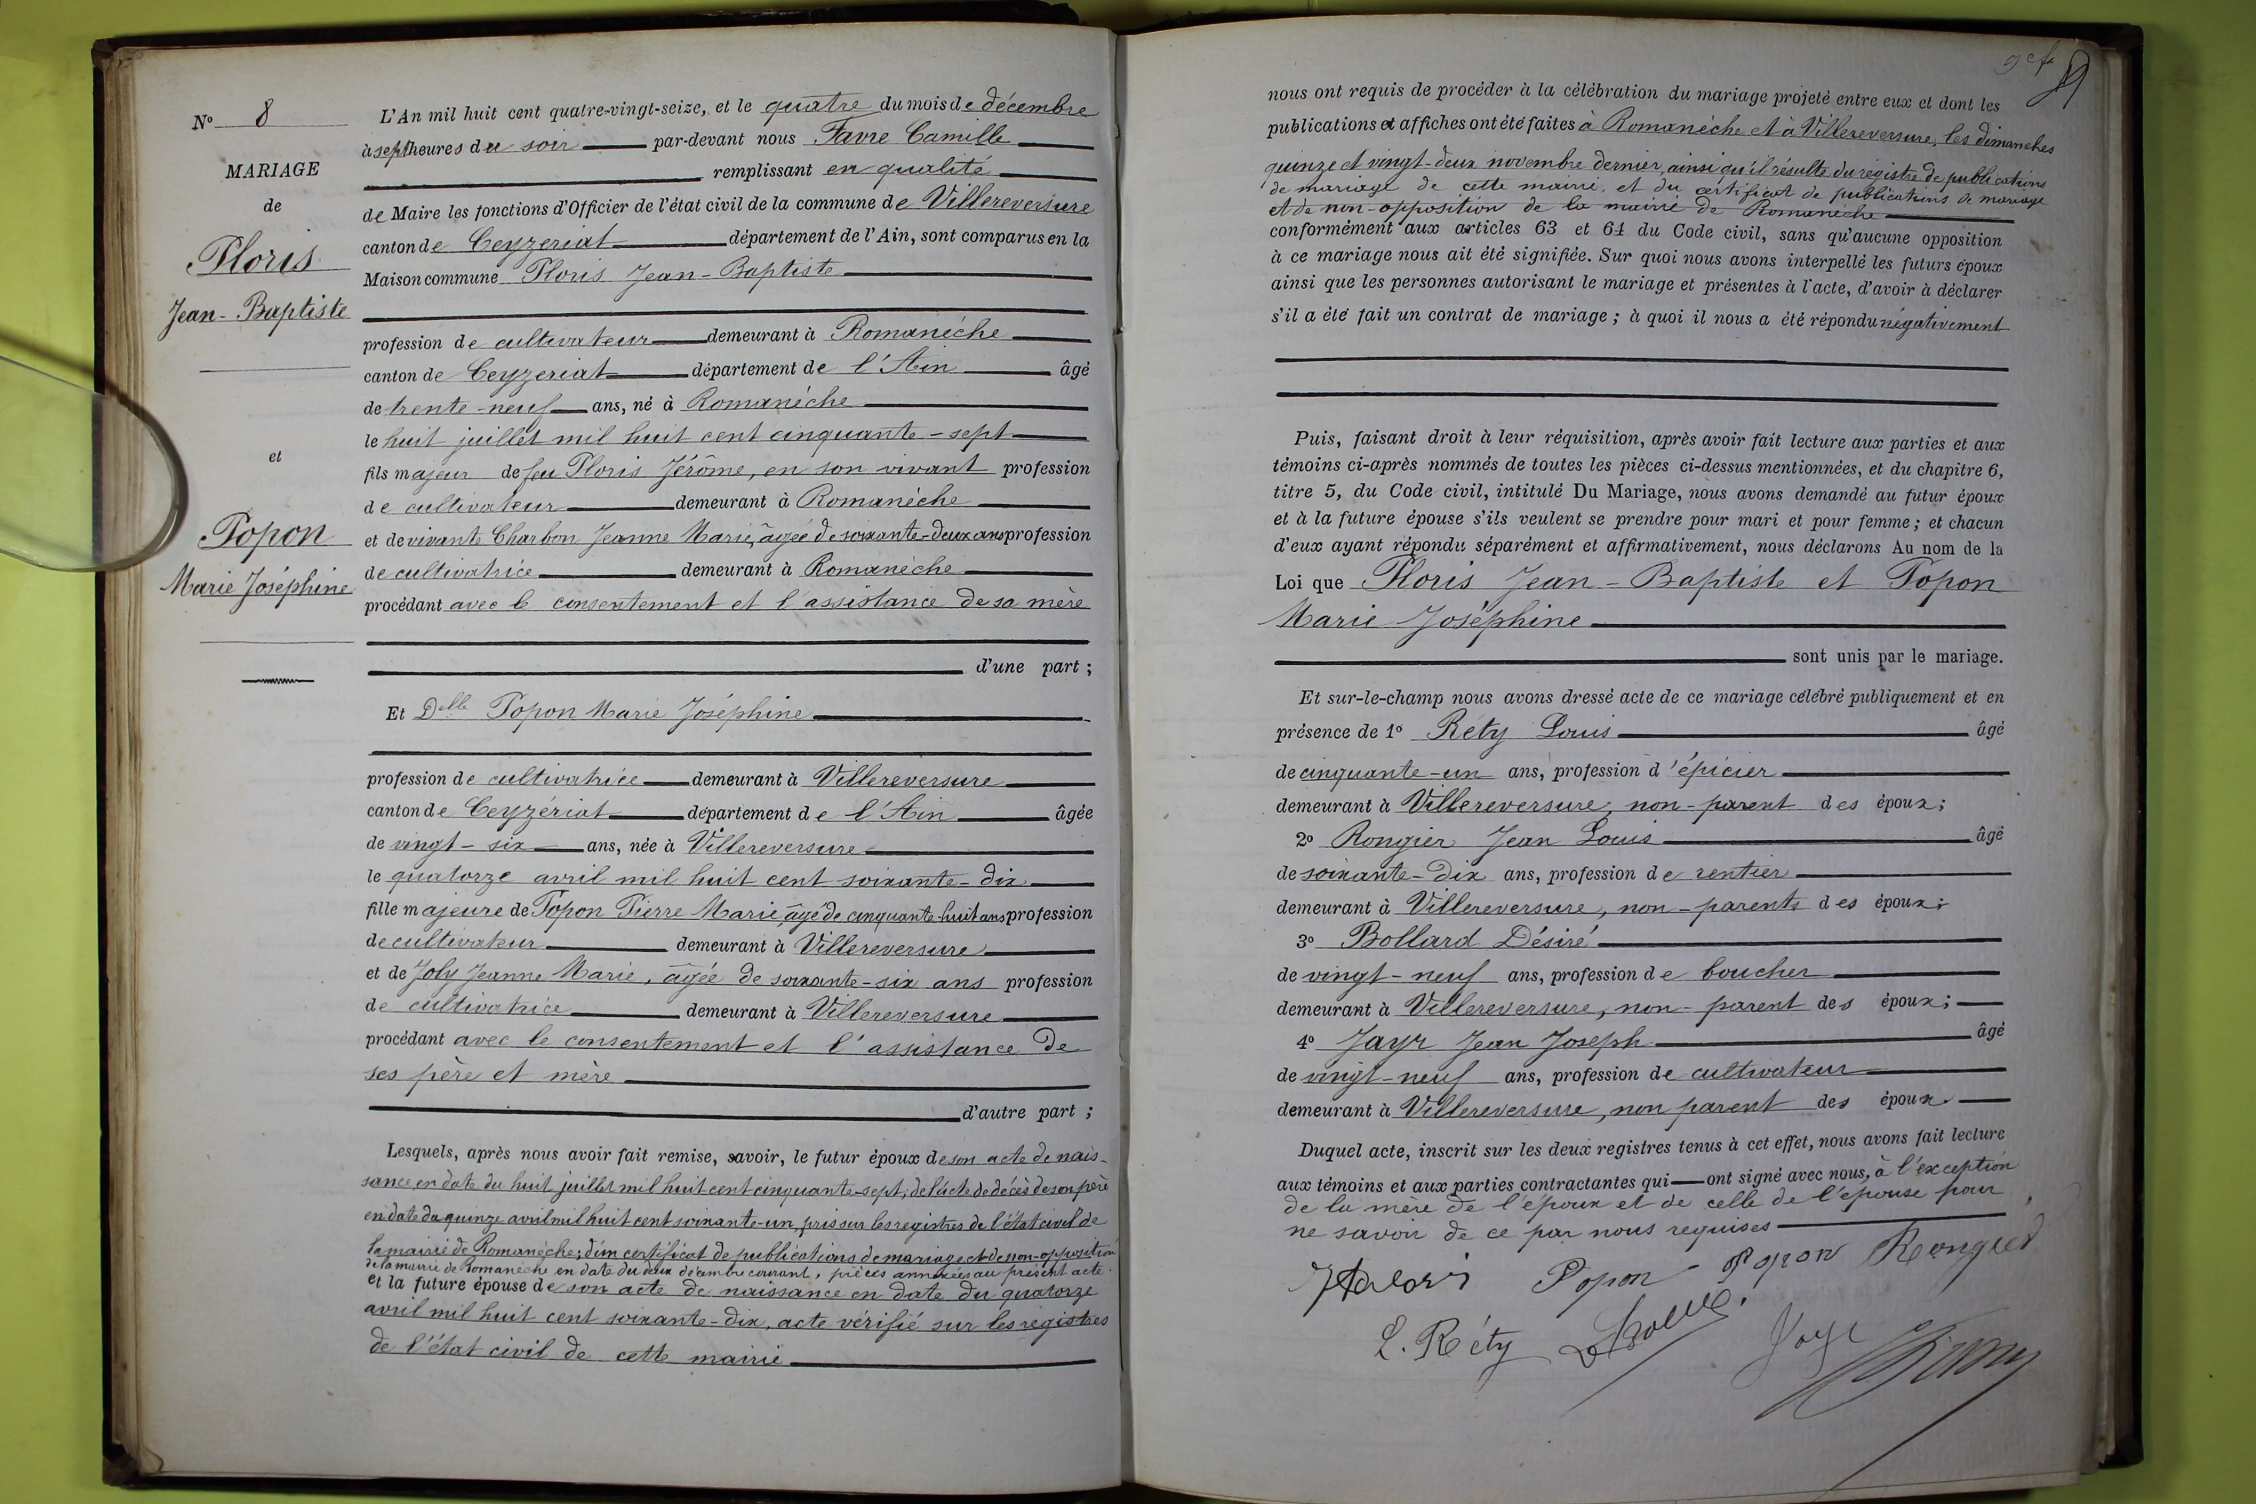 N° 8
MARIAGE
de
Floris
Jean-Baptiste
et
Popon
Marie Joséphine
L'An mil huit cent quatre-vingt-seize, et le quatre du mois de décembre
à sept heures du soir par-devant nous Favre Camille
remplissant en qualité
de Maire les fonctions d'Officier de l'état civil de la commune de Villereversure
canton de Ceyzeriat département de l'Ain, sont comparus en la
Maison commune Floris Jean-Baptiste
profession de cultivateur demeurant à Romanèche
canton de Ceyzeriat département de l'Ain âgé
de trente-neuf ans, né à Romanèche
le huit juillet mil huit cent cinquante-sept
fils majeur de feu Floris Jérôme, en son vivant profession
de cultivateur demeurant à Romanèche
et de vivante Charbon Jeanne Marie, âgée de soixante-deux ans profession
de cultivatrice demeurant à Romanèche
procédant avec le consentement et l'assistance de sa mère
d'une part ;
Et Delle Popon Marie Joséphine
profession de cultivatrice demeurant à Villereversure
canton de Ceyzériat département de l'Ain âgée
de vingt-six ans, née à Villereversure
le quatorze avril mil huit cent soixante-dix
fille majeure de Popon Pierre Marie, âgé de cinquante-huit ans profession
de cultivateur demeurant à Villereversure
et de Joly Jeanne Marie, âgée de soixante-six ans profession
de cultivatrice demeurant à Villereversure
procédant avec le consentement et l'assistance de
ses père et mère
d'autre part ;
Lesquels, après nous avoir fait remise, savoir, le futur époux de son acte de nais-
sance en date du huit juillet mil huit cent cinquante-sept; de l'acte de décès de son père
en date du quinze avril mil huit cent soixante-un, pris sur les registres de l'état civil de
la mairie de Romanèche; d'un certificat de publications de mariage et de non-opposition
de la mairie de Romanèche en date du deux décembre courant, pièces annexées au présent acte.
et la future épouse de son acte de naissance en date du quatorze
avril mil huit cent soixante-dix, acte vérifié sur les registres
de l'état civil de cette mairie
nous ont requis de procéder à la célébration du mariage projeté entre eux et dont les
publications et affiches ont été faites à Romanèche et à Villereversure, les dimanches
quinze et vingt-deux novembre dernier, ainsi qu'il résulte du registre de publications
de mariage de cette mairie, et du certificat de publications de mariage
et de non-opposition de la mairie de Romanèche
conformément aux articles 63 et 64 du Code civil, sans qu'aucune opposition
à ce mariage nous ait été signifiée. Sur quoi nous avons interpellé les futurs époux
ainsi que les personnes autorisant le mariage et présentes à l'acte, d'avoir à déclarer
s'il a été fait un contrat de mariage ; à quoi il nous a été répondu négativement
Puis, faisant droit à leur réquisition, après avoir fait lecture aux parties et aux
témoins ci-après nommés de toutes les pièces ci-dessus mentionnées, et du chapitre 6,
titre 5, du Code civil, intitulé Du Mariage, nous avons demandé au futur époux
et à la future épouse s'ils veulent se prendre pour mari et pour femme ; et chacun
d'eux ayant répondu séparément et affirmativement, nous déclarons Au nom de la
Loi que Floris Jean-Baptiste et Popon
Marie Joséphine
sont unis par le mariage.
Et sur-le-champ nous avons dressé acte de ce mariage célébré publiquement et en
présence de 1° Réty Louis âgé
de cinquante-un ans, profession d'épicier
demeurant à Villereversure, non-parent des époux;
2° Rongier Jean Louis âgé
de soixante-dix ans, profession de rentier
demeurant à Villereversure, non-parents des époux;
3° Bollard Désiré
de vingt-neuf ans, profession de boucher
demeurant à Villereversure, non-parent des époux;
4° Jayr Jean Joseph âgé
de vingt-neuf ans, profession de cultivateur
demeurant à Villereversure, non parent des époux.
Duquel acte, inscrit sur les deux registres tenus à cet effet, nous avons fait lecture
aux témoins et aux parties contractantes qui ont signé avec nous, à l'exception
de la mère de l'époux et de celle de l'épouse pour
ne savoir de ce par nous requises
Popon Popon Rongier
L. Réty Jayr